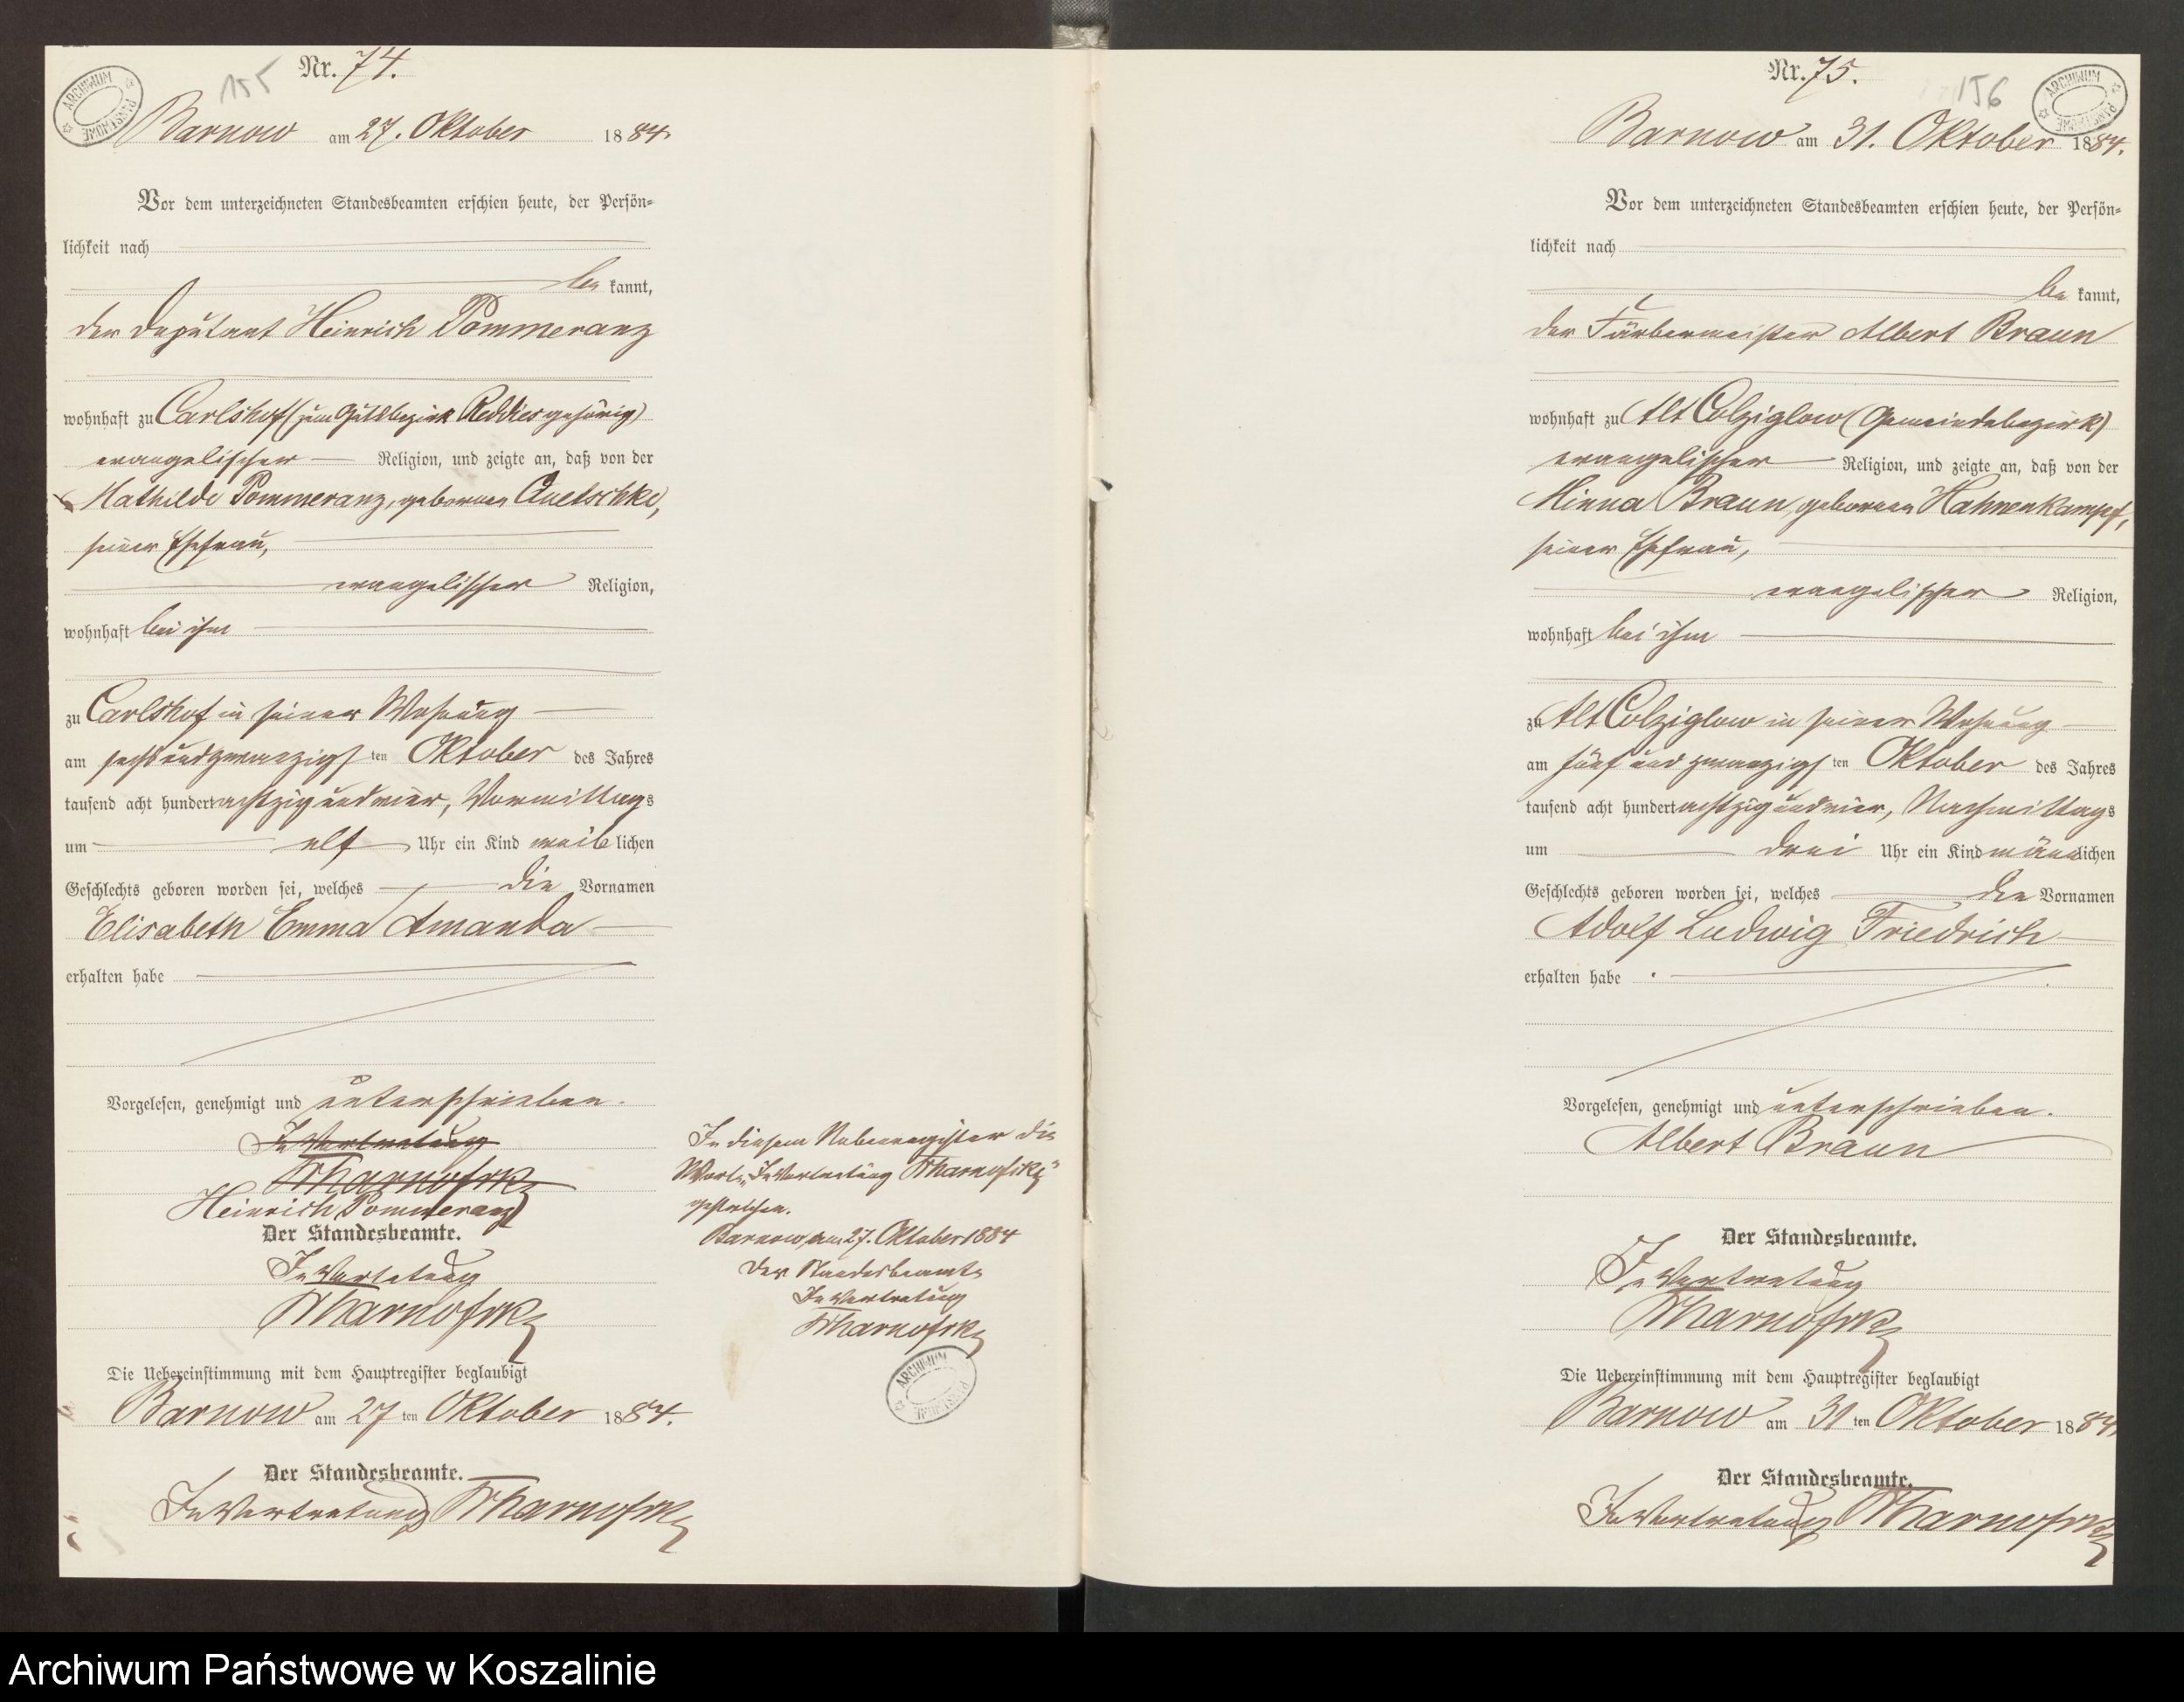 155
Nr. 74.
ARCHIWUM PAŃSTWOWE
Barnow am 27. Oktober 1884.
Vor dem unterzeichneten Standesbeamten erschien heute, der Persön-
lichkeit nach
be kannt,
der Deputant Heinrich Pommeranz
wohnhaft zu Carlshof (zum Gutsbezirk Reddies gehörig)
evangelischer Religion, und zeigte an, daß von der
Mathilde Pommeranz, geborenen Quetschke,
seiner Ehefrau,
evangelischer Religion,
wohnhaft bei ihm
zu Carlshof in seiner Wohnung
am sechsundzwanzigsten Oktober des Jahres
tausend acht hundert achtzig und vier, Vormittags
um elf Uhr ein Kind weiblichen
Geschlechts geboren worden sei, welches die Vornamen
Elisabeth Emma Amanda
erhalten habe
Vorgelesen, genehmigt und unterschrieben.
In Vertretung
Heinrich Pommeranz
Der Standesbeamte.
In Vertretung
Die Uebereinstimmung mit dem Hauptregister beglaubigt
Barnow am 27 ten Oktober 1884.
Der Standesbeamte.
In Vertretung
In diesem Nebenregister die
Worte "In Vertretung
gestrichen.
Barnow, am 27. Oktober 1884
Der Standesbeamte
In Vertretung
ARCHIWUM PAŃSTWOWE
Nr. 75.
156
ARCHIWUM PAŃSTWOWE
Barnow am 31. Oktober 1884.
Vor dem unterzeichneten Standesbeamten erschien heute, der Persön-
lichkeit nach
be kannt,
der Färbermeister Albert Braun
wohnhaft zu Alt Colziglow (Gemeindebezirk)
evangelischer Religion, und zeigte an, daß von der
Minna Braun geborenen Hahnenkampf,
seiner Ehefrau,
evangelischer Religion,
wohnhaft bei ihm
zu Alt Colziglow in seiner Wohnung
am fünf und zwanzigsten Oktober des Jahres
tausend acht hundert achtzig und vier, Nachmittags
um drei Uhr ein Kind männlichen
Geschlechts geboren worden sei, welches die Vornamen
Adolf Ludwig Friedrich
erhalten habe
Vorgelesen, genehmigt und unterschrieben.
Albert Braun
Der Standesbeamte.
In Vertretung
Die Uebereinstimmung mit dem Hauptregister beglaubigt
Barnow am 31 ten Oktober 1884.
Der Standesbeamte.
In Vertretung
Archiwum Państwowe w Koszalinie